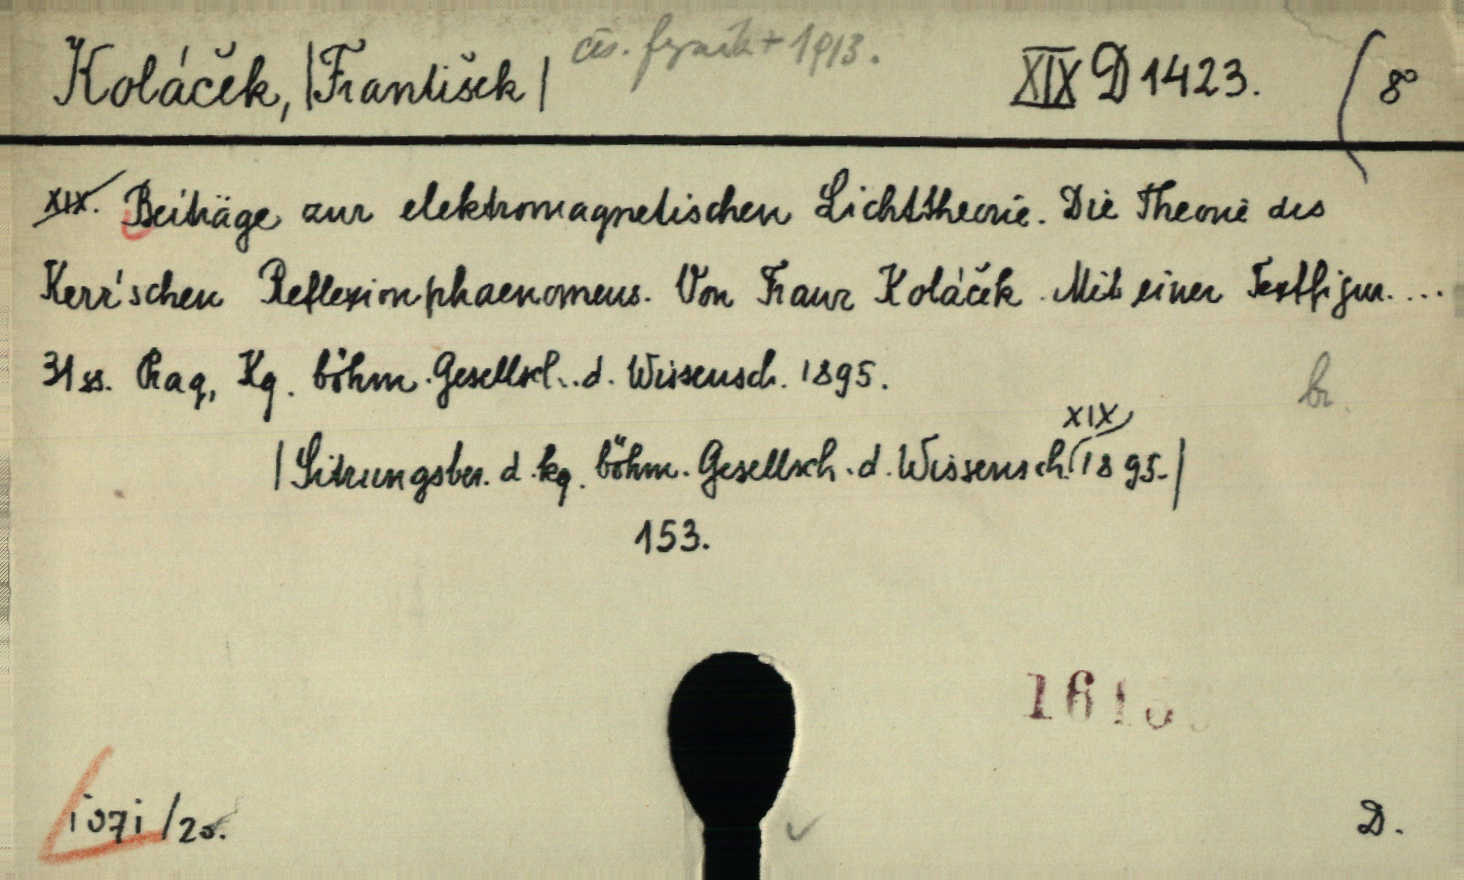 Koláček, |František| čes. fysik + 1913. XIX D 1423. 8°
XIX. Beiträge zur elektromagnetischen Lichttheorie. Die Theorie des
Kerr'schen Reflexionphaenomens. Von Franz Koláček. Mit einer Textfigur....
31 ss. Prag, Kg. böhm. Gesellsch. d. Wissensch. 1895.
br.
XIX
|Sitzungsber. d. kg. böhm. Gesellsch. d. Wissensch. 1895.|
153.
D.